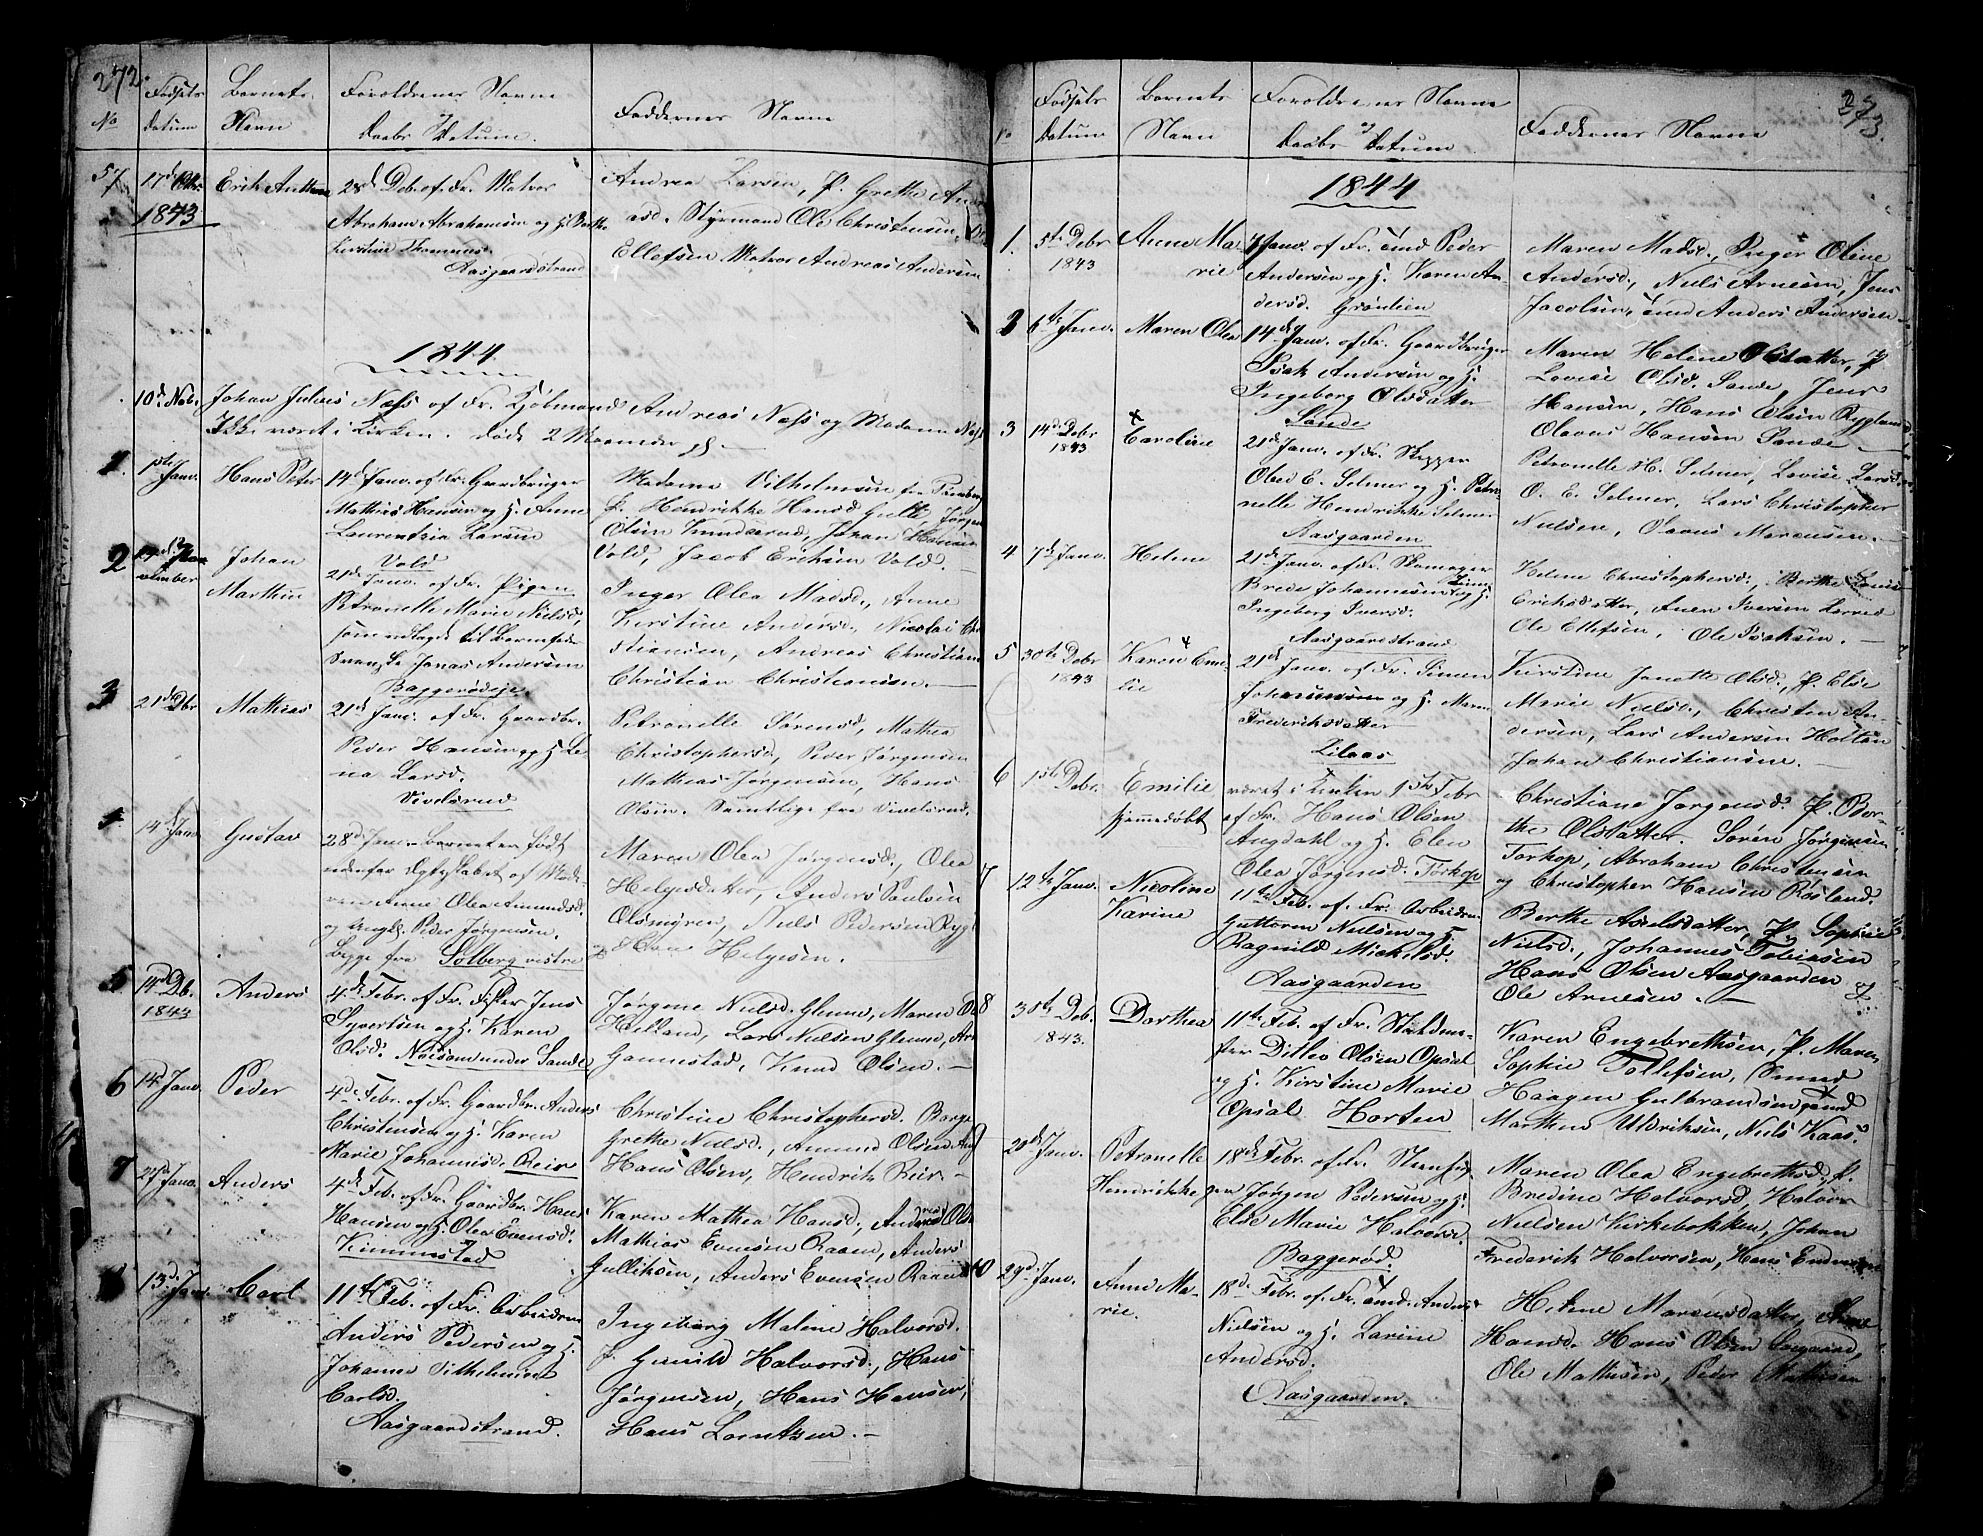 272.
No
Fødsels
datum
Barnets
Navn
Forældrenes Navne
Daabs Datum.
Faddernes Navne
57
1843
Erik Anthon
28d Debr. of. Fr. Matros
Abraham Abrahamsen og H. Berthe
Kirstine
Aasgaardstrand
Andrea Larsen, P. Grethe
Styrmand Ole Christensen,
Ellefsen Matros Andreas Andersen
1844
10d Nob.
Johan Julius Næss of Fr. Kjøbmand Andreas Næss og Madame Næss
Ikke været i Kirken. døde 2 Maaneder gl —
1.
1ste Janv.
Hans Peter
14d Janv. of. Fr. Gaardbruger
Mathias Hansen og H. Anne
Laurentzia Larsen
Vold
Madame Vilhelmsen fra
P. Hendrikke Hansd. Gulli, Jørgen
Olsen Lundaarud, Johan Hansen
Vold, Jacob Eriksen Vold. —
2
vember
Johan
Marthin
21de Janv. of. Fr. Pigen
Petronelle Marie Nielsd,
som udlagt til Barnefader
Svenske Jonas Andersen
Baggerødeje
Inger Olea Madsd., Anne
Kirstine Andersd., Nicolai Chr
stiansen, Andreas Christians
Christian Christiansen. —
3
21de Dbr
Mathias
21d Janv. of. Fr. Gaardbr.
Peder Hansen og H. Le-
na Larsd.
Sivelsrud
Petronelle Sørensd, Mathea
Christophersd, Peder Jørgensen
Mathias Jørgensen, Hans
Olsen. Samtlige fra Sivelsrud.
4
14d Janv.
Gustav
28d Janv. Barnet er født
udenfor Ægteskabet of
Anne Olea Amundsd.
og Ungk. Peder Jørgensen,
begge fra Solberg vestre
Maren Olea Jørgensd., Olea
Helgesdatter, Anders Paulsen
Olsmyren, Niels Pedersen Ryg
og Hans Helgesen.
5
14d Db.
1843
Anders
4de Febr. of Fr. Fisker Jens
Syvertsen og H. Karen
Olsd. Næsom under Sande
Jørgene Nielsd. Glenne, Maren
Helland, Lars Nielsen Glenne,
Gannestad, Knud Olsen. —
6
14d Janv.
Peder
4de Febr. of Fr. Gaardbr. Anders
Christensen og H. Karen
Marie Johannisd. Reir
Christine Christophersd. Borge
Grethe Nielsd., Amund Olsen
Hans Olsen, Hendrik Reir —
7
27d Janv.
Anders
4de Feb. of Fr. Gaardbr. Hans
Hansen og H. Olea Evensd.
Kimmestad
Karen Mathea Hansd., Andrea Ols
Mathias Evensen Raaen, Anders
Gulliksen, Anders Evensen Raaen
8
13d Janv.
Carl
11te Feb. of Fr. Arbeidsm.
Anders Pedersen og H.
Johanne Vilhelmine
Carlsd.
Aasgaardstrand.
Ingeborg Malene Halvorsd.
P. Gunild Halvorsd., Hans
Jørgensen, Hans Hansen,
Hans Lorntzen. —
273.
No
Fødsels
Datum
Barnets
Navn
Forældrenes Navne
og
Daabs Datum
Faddernes Navne
1844
1.
5te Debr
1843
Anne Ma-
rie
7 Janv. of Fr. Tmd Peder
Andersen og H. Karen An-
dersd. Grønlien
Maren Madsd., Inger Oline
Andersd., Niels Arnesen, Jens
Jacobsen, Tmd Anders Andersen —
2
6te Janv.
Maren Olea
14de Janv. of Fr. Gaardbruger
Isak Andersen og H.
Ingeborg Olsdatter
Sande
Maren Helene Olsdatter, P
Lovise Olsd. Sande, Jens
Hansen, Hans Olsen Rygland
Olavus Hansen Sande —
3
14de Debr
1843
Caroline
21de Janv. of Fr. Skipper
Oled E. Selmer og H. Petro-
nelle Hendrikke Selmer
Aasgaarden
Petronelle H. Selmer, Lovise Larsd
O. E. Selmer, Lars Christopher
Nielsen, Olavus Marcussen. —
4
7de Janv.
Helene
21de Janv. of Fr. Skomager
Brede Johannesen Liung og H.
Ingeborg Iversd.
Aasgaardstrand
Helene Christophersd., Berthe
Eriksdatter, Anen Iversen Lerred
Ole Ellefsen, Ole Isaksen. —
5
30te Debr
1843
Karen Eme-
lie
21de Janv. of Fr. Simen
Johannessen og H. Maren
Frederiksdatter
Lilaas
Kirstine Janette Olsd., P. Else
Marie Nielsd., Christen An-
dersen, Lars Andersen Holtan
Johan Christiansen. —
6
1ste Debr.
Emilie
hjemmedøbt
været i Kirken 1ste Febr
of Fr. Hans Olsen
Augdahl og H. Elen
Olea Jørgensd. Torkop
Christiane Jørgensd. P. Ber-
the Olsdatter. Søren Jørgensen
Torkop, Abraham Christensen
og Christopher Hansen Røsland.
7
12te Janv.
Nicoline
Karine
11te Feb. of. Fr. Arbeidsm.
Guttorm Nielsen og H
Ragnild Mickelsd.
Aasgaarden
Berthe Axelsdatter, P. Sophie
Nielsd., Johannes Tobiasen
Hans Olsen Aasgaarden
Ole Arnesen. —
8
30te Deb.
1843.
Dorthea
11te Feb. of Fr.
Ditlev Olsen Opsal
og H. Kirstine Marie
Opsal Horten
Karen Engebrethsen, P. Maren
Sophie Tollefsen, Smed
Haagen Gulbrandsen
Marthin Uldriksen, Niels Kaas.
9
20de Janv.
Petronelle
Hendrikke
18de Febr. of Fr. Stenhug-
gen Jørgen Pedersen og H.
Else Marie Halvorsd.
Baggerød.
Maren Olea Engebrethsd., P.
Bredine Halvorsd, Halvor
Nielsen Kirkebakken, Johan
Frederik Halvorsen, Hans
10
29d Janv.
Anne Ma-
rie.
18d. Febr. of. Fr. Tmd. Anders
Nielsen og H. Larine
Andersd.
Aasgaarden.
Helene Marcusdatter, Anne
Hansd. Hans Olsen
Ole Mathisen, Peder Mathisen